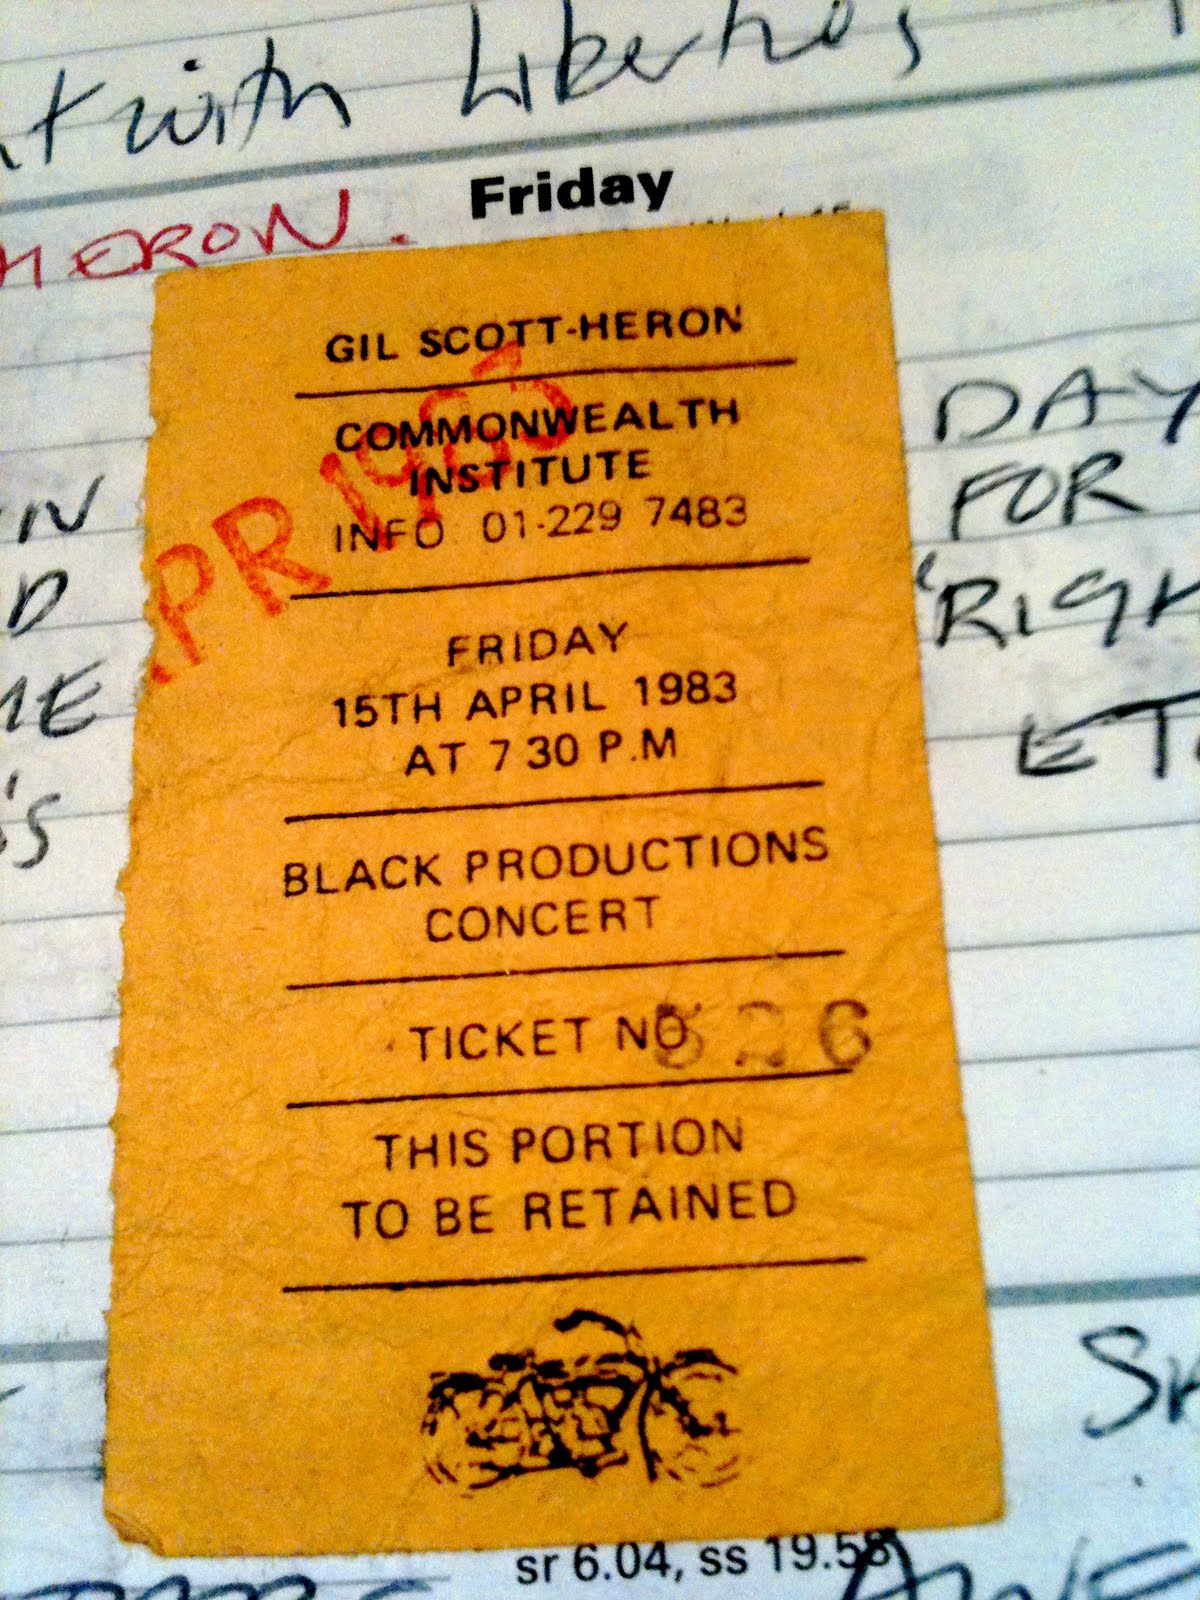 with Liberties
Friday
HERON.
GIL SCOTT-HERON
COMMONWEALTH
INSTITUTE
INFO 01-229 7483
APR 1983
FRIDAY
15TH APRIL 1983
AT 7 30 P.M
BLACK PRODUCTIONS
CONCERT
TICKET NO 526
THIS PORTION
TO BE RETAINED
DAY
FOR
'RIGH
sr 6.04, ss 19.58